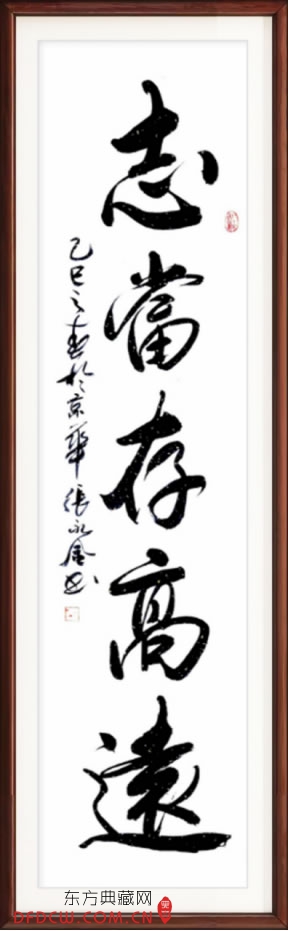 志當存高遠
乙巳之春於京華張永金书
东方典藏网
DFDCW.COM.CN